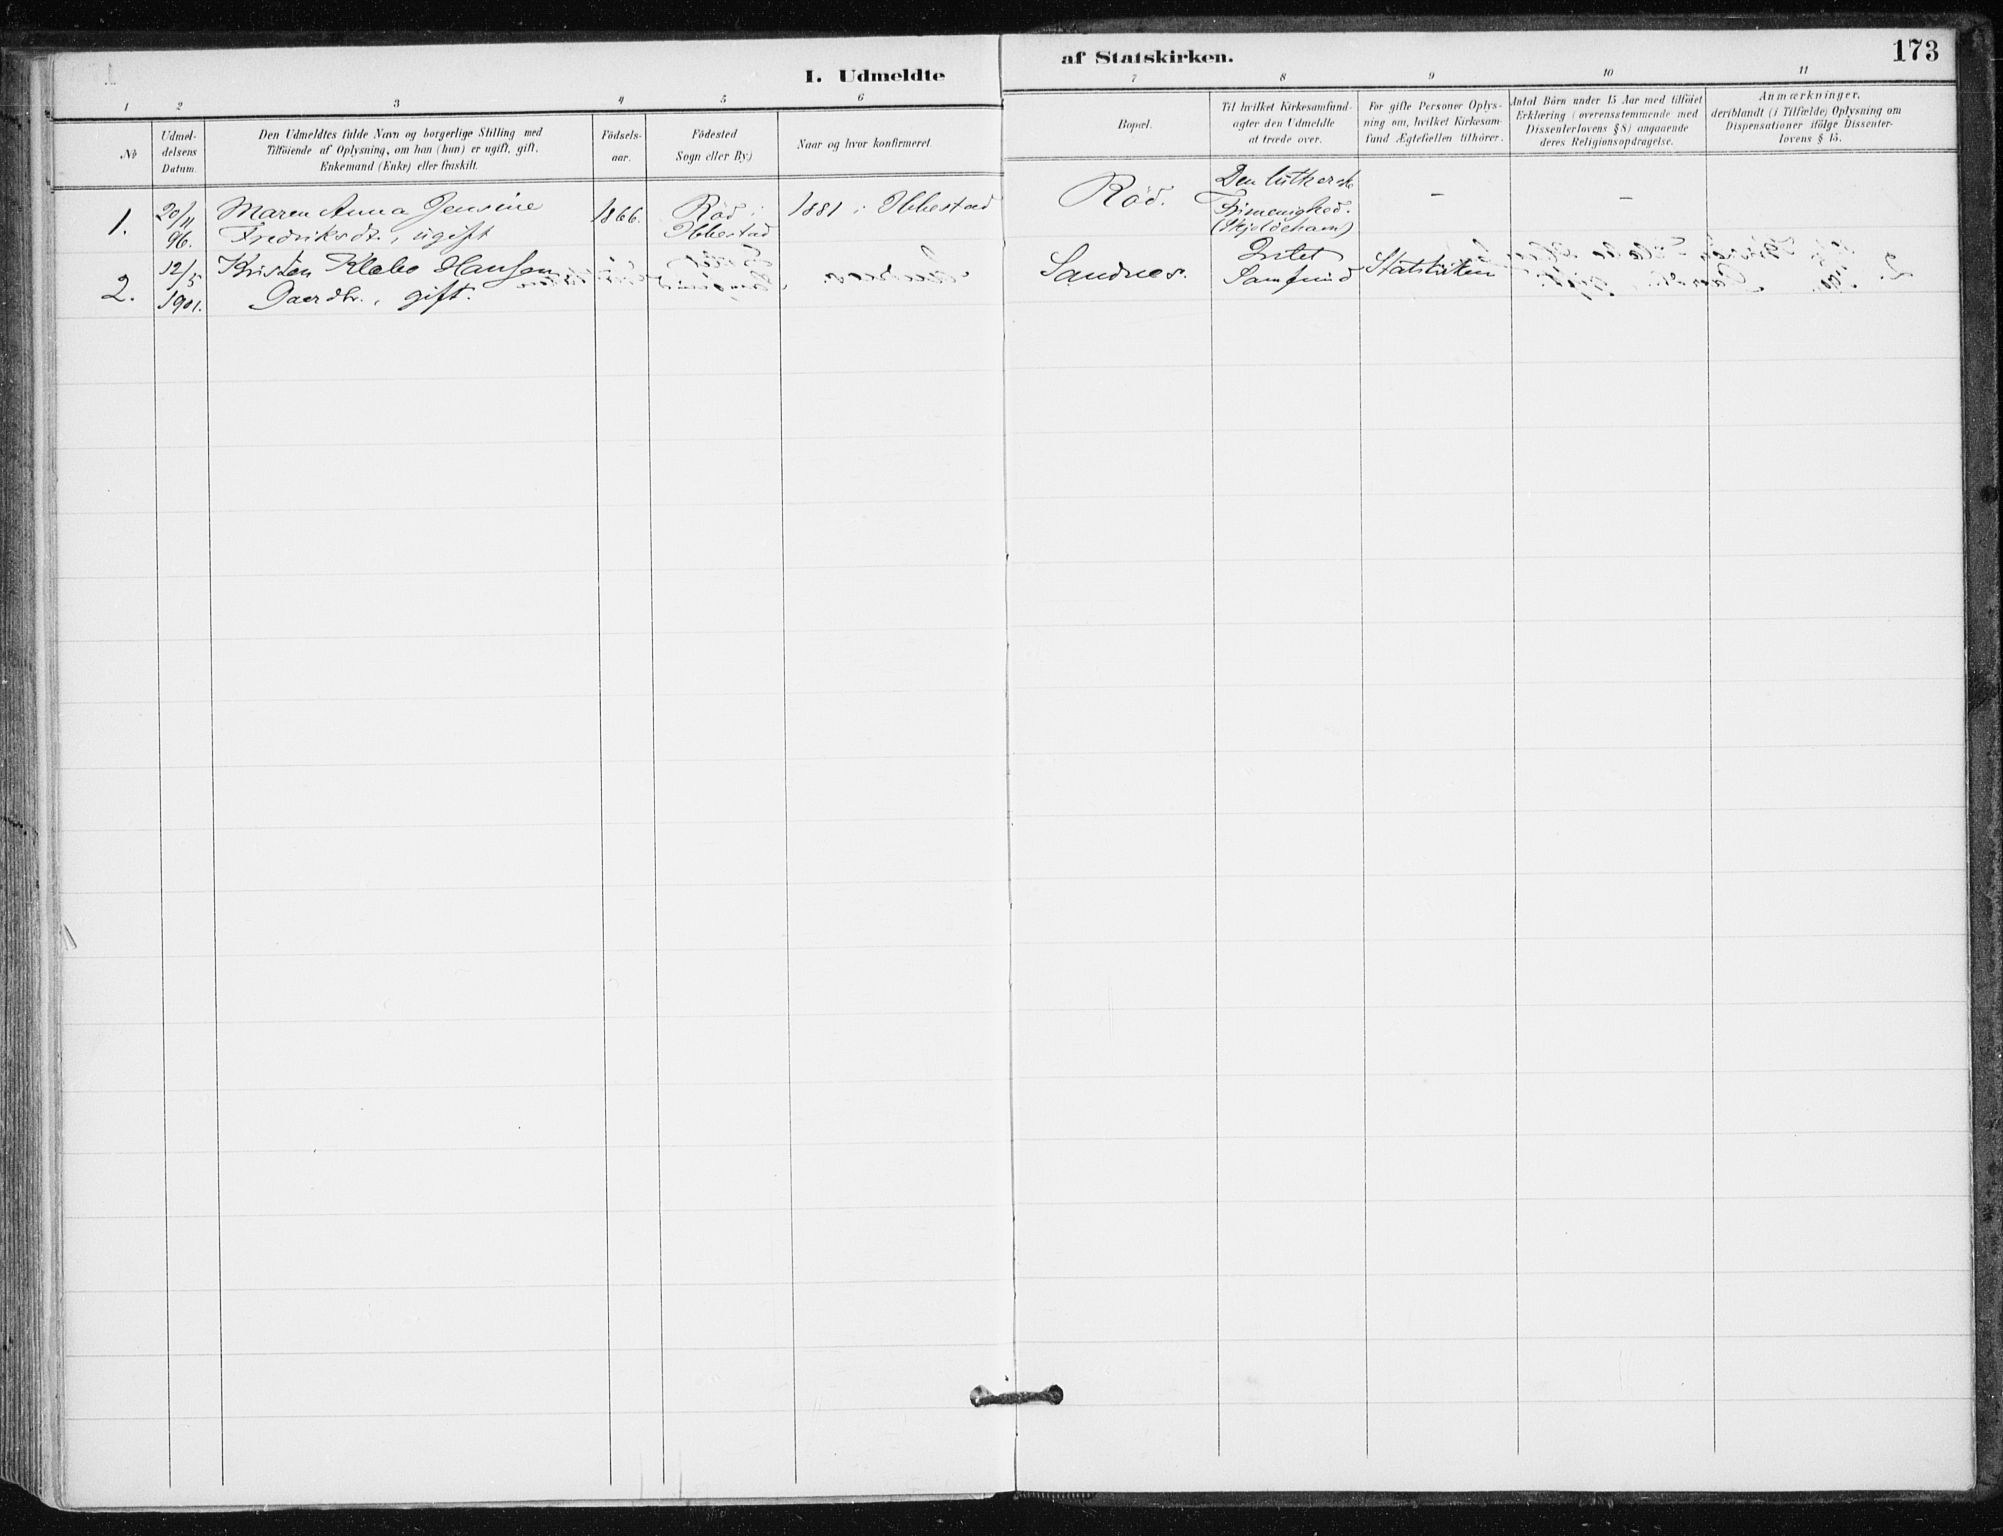 I. Udmeldte
af Statskirken.
173
1 2 3 4 5 6 7 8 9 10 11
No
Udmel-
delsens
Datum.
Den Udmeldtes fulde Navn og borgerlige Stilling med
Tilföiende af Oplysning, om han (hun) er ugift, gift,
Enkemand (Enke) eller fraskilt.
Födsels-
aar.
Födested
Sogn eller By)
Naar og hvor konfirmeret.
Bopæl.
Til hvilket Kirkesamfund-
agter den Udmeldte
at træde over.
For gifte Personer Oplys-
ning om, hvilket Kirkesam-
fund Ægtefællen tilhörer.
Antal Börn under 15 Aar med tilföiet
Erklæring (overensstemmende med
Dissenterlovens § 8) angaaende
deres Religionsopdragelse.
Anmærkninger,
deriblandt (i Tilfælde) Oplysning om
Dispensationer ifölge Dissenter-
lovens § 15.
1.
20/11
96.
Maren Anna Jensine
Fredriksdt., ugift
1866.
Röd i
Ibbestad
1881 i Ibbestad
Röd.
Den lutherske
Frimenighed.
(Skjoldehavn)
–
–
2.
12/5
1901.
Kristen Klæbo Hansen
Gaardbr., gift.
Sandnes.
Intet
Samfund
Statskirken